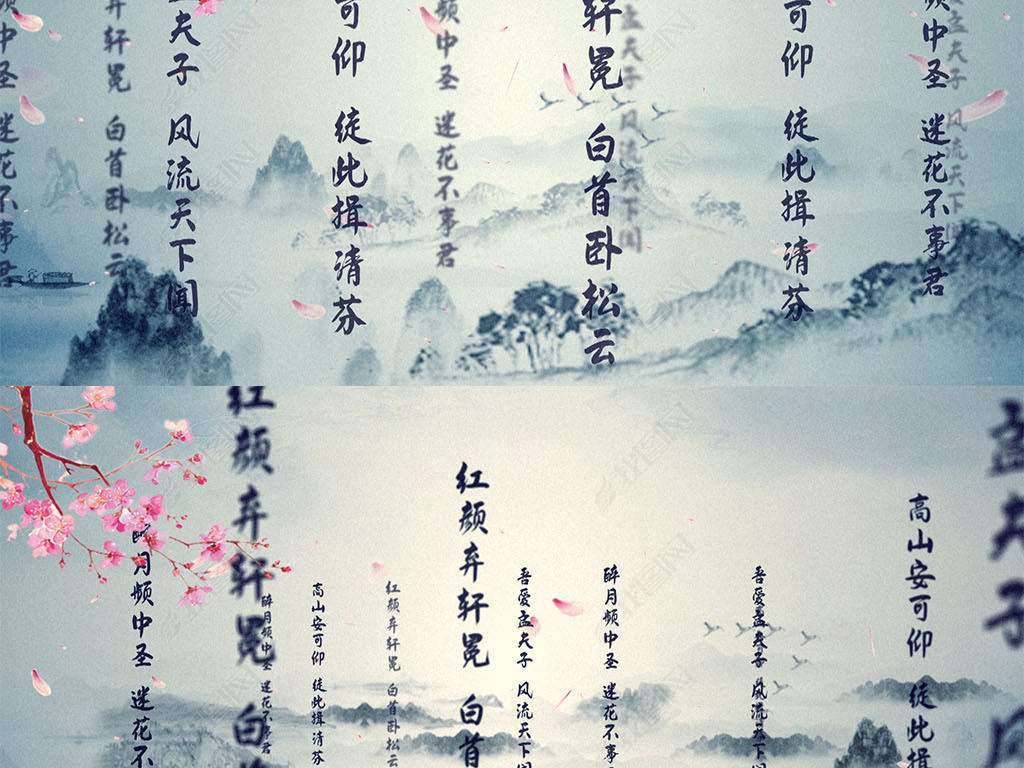 中圣 迷花不事君
弃轩冕 白首卧松云
夫子 风流天下闻
可仰 徒此揖清芬
频中圣 迷花不事君
轩冕 白首卧松云
孟夫子 风流天下闻
可仰 徒此揖清芬
频中圣 迷花不事君
孟夫子 风流天下
醉月频中圣 迷花不
红颜弃轩冕 白首
醉月频中圣 迷花不事君
高山安可仰 徒此揖清芬
红颜弃轩冕 白首卧松云
红颜弃轩冕 白首
吾爱孟夫子 风流天下
醉月频中圣 迷花不事
吾爱孟夫子 风流天下
高山安可仰 徒此揖
孟夫子 风